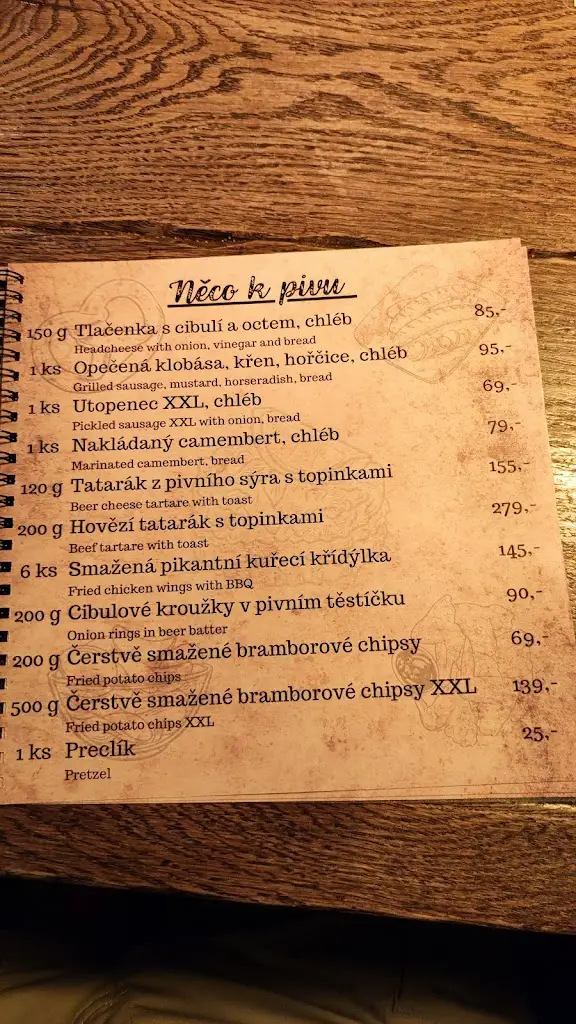 Něco k pivu
150 g Tlačenka s cibulí a octem, chléb 85,-
Headcheese with onion, vinegar and bread
1 ks Opečená klobása, křen, hořčice, chléb 95,-
Grilled sausage, mustard, horseradish, bread
1 ks Utopenec XXL, chléb 69,-
Pickled sausage XXL with onion, bread
1 ks Nakládaný camembert, chléb 79,-
Marinated camembert, bread
120 g Tatarák z pivního sýra s topinkami 155,-
Beer cheese tartare with toast
200 g Hovězí tatarák s topinkami 279,-
Beef tartare with toast
6 ks Smažená pikantní kuřecí křídýlka 145,-
Fried chicken wings with BBQ
200 g Cibulové kroužky v pivním těstíčku 90,-
Onion rings in beer batter
200 g Čerstvě smažené bramborové chipsy 69,-
Fried potato chips
500 g Čerstvě smažené bramborové chipsy XXL 139,-
Fried potato chips XXL
1 ks Preclík 25,-
Pretzel